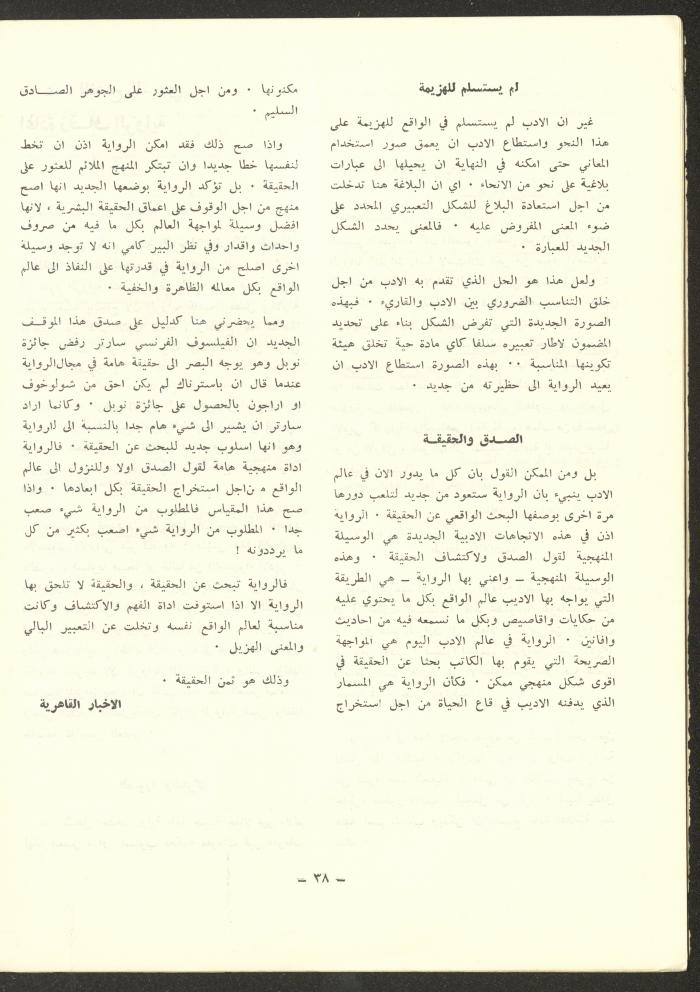 لم يستسلم للهزيمة
غير ان الادب لم يستسلم في الواقع للهزيمة على
هذا النحو واستطاع الادب ان يعمق صور استخدام
المعاني حتى امكنه في النهاية ان يحيلها الى عبارات
بلاغية على نحو من الانحاء . اي ان البلاغة هنا تدخلت
من اجل استعادة البلاغ للشكل التعبيري المحدد على
ضوء المعنى المفروض عليه . فالمعنى يحدد الشكل
الجديد للعبارة .
ولعل هذا هو الحل الذي تقدم به الادب من اجل
خلق التناسب الضروري بين الادب والقاريء . فبهذه
الصورة الجديدة التي تفرض الشكل بناء على تحديد
المضمون لاطار تعبيره سلفا كاي مادة حية تخلق هيئة
تكوينها المناسبة .. بهذه الصورة استطاع الادب ان
يعيد الرواية الى حظيرته من جديد .
الصـدق والحقيقـة
بل ومن الممكن القول بان كل ما يدور الان في عالم
الادب ينبيء بان الرواية ستعود من جديد لتلعب دورها
مرة اخرى بوصفها البحث الواقعي عن الحقيقة . الرواية
اذن في هذه الاتجاهات الادبية الجديدة هي الوسيلة
المنهجية لقول الصدق ولاكتشاف الحقيقة . وهذه
الوسيلة المنهجية ــ واعني بها الرواية ــ هي الطريقة
التي يواجه بها الاديب عالم الواقع بكل ما يحتوي عليه
من حكايات واقاصيص وبكل ما نسمعه فيه من احاديث
وافانين . الرواية في عالم الادب اليوم هي المواجهة
الصريحة التي يقوم بها الكاتب بحثا عن الحقيقة في
اقوى شكل منهجي ممكن . فكأن الرواية هي المسمار
الذي يدفنه الاديب في قاع الحياة من اجل استخراج
مكنونها . ومن اجل العثور على الجوهر الصــادق
السليم .
واذا صح ذلك فقد امكن الرواية اذن ان تخط
لنفسها خطا جديدا وان تبتكر المنهج الملائم للعثور على
الحقيقة . بل تؤكد الرواية بوضعها الجديد انها اصح
منهج من اجل الوقوف على اعماق الحقيقة البشرية ، لانها
افضل وسيلة لمواجهة العالم بكل ما فيه من صروف
واحداث واقدار وفي نظر البير كامي انه لا توجد وسيلة
اخرى اصلح من الرواية في قدرتها على النفاذ الى عالم
الواقع بكل معالمه الظاهرة والخفية .
ومما يحضرني هنا كدليل على صدق هذا الموقـف
الجديد ان الفيلسوف الفرنسي سارتر رفض جائزة
نوبل وهو يوجه البصر الى حقيقة هامة في مجال الرواية
عندما قال ان باسترناك لم يكن احق من شولوخوف
او اراجون بالحصول على جائزة نوبل . وكانما اراد
سارتر ان يشير الى شيء هام جدا بالنسبة الى الرواية
وهو انها اسلوب جديد للبحث عن الحقيقة . فالرواية
اداة منهجية هامة لقول الصدق اولا وللنزول الى عالم
الواقع م ن اجل استخراج الحقيقة بكل ابعادها . واذا
صح هذا المقياس فالمطلوب من الرواية شيء صعب
جدا . المطلوب من الرواية شيء اصعب بكثير من كل
ما يرددونه !
فالرواية تبحث عن الحقيقة ، والحقيقة لا تلحق بها
الرواية الا اذا استوفت اداة الفهم والاكتشاف وكانت
مناسبة لعالم الواقع نفسه وتخلت عن التعبير البالي
والمعنى الهزيل .
وذلك هو ثمن الحقيقة .
الاخبار القاهرية
– ٣٨ –